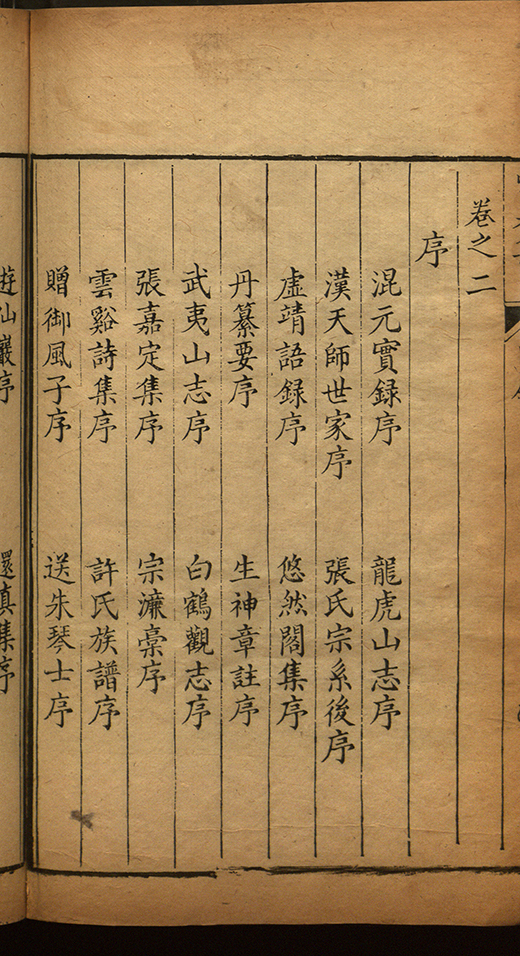 卷之二
序
混元實録序 龍虎山志序
漢天師世家序 張氏宗系後序
虛靖語録序 悠然閣集序
丹纂要序 生神章註序
武夷山志序 白鶴觀志序
張嘉定集序 宗濂稾序
雲谿詩集序 許氏族譜序
贈御風子序 送朱琴士序
遊仙巖序 還真集序